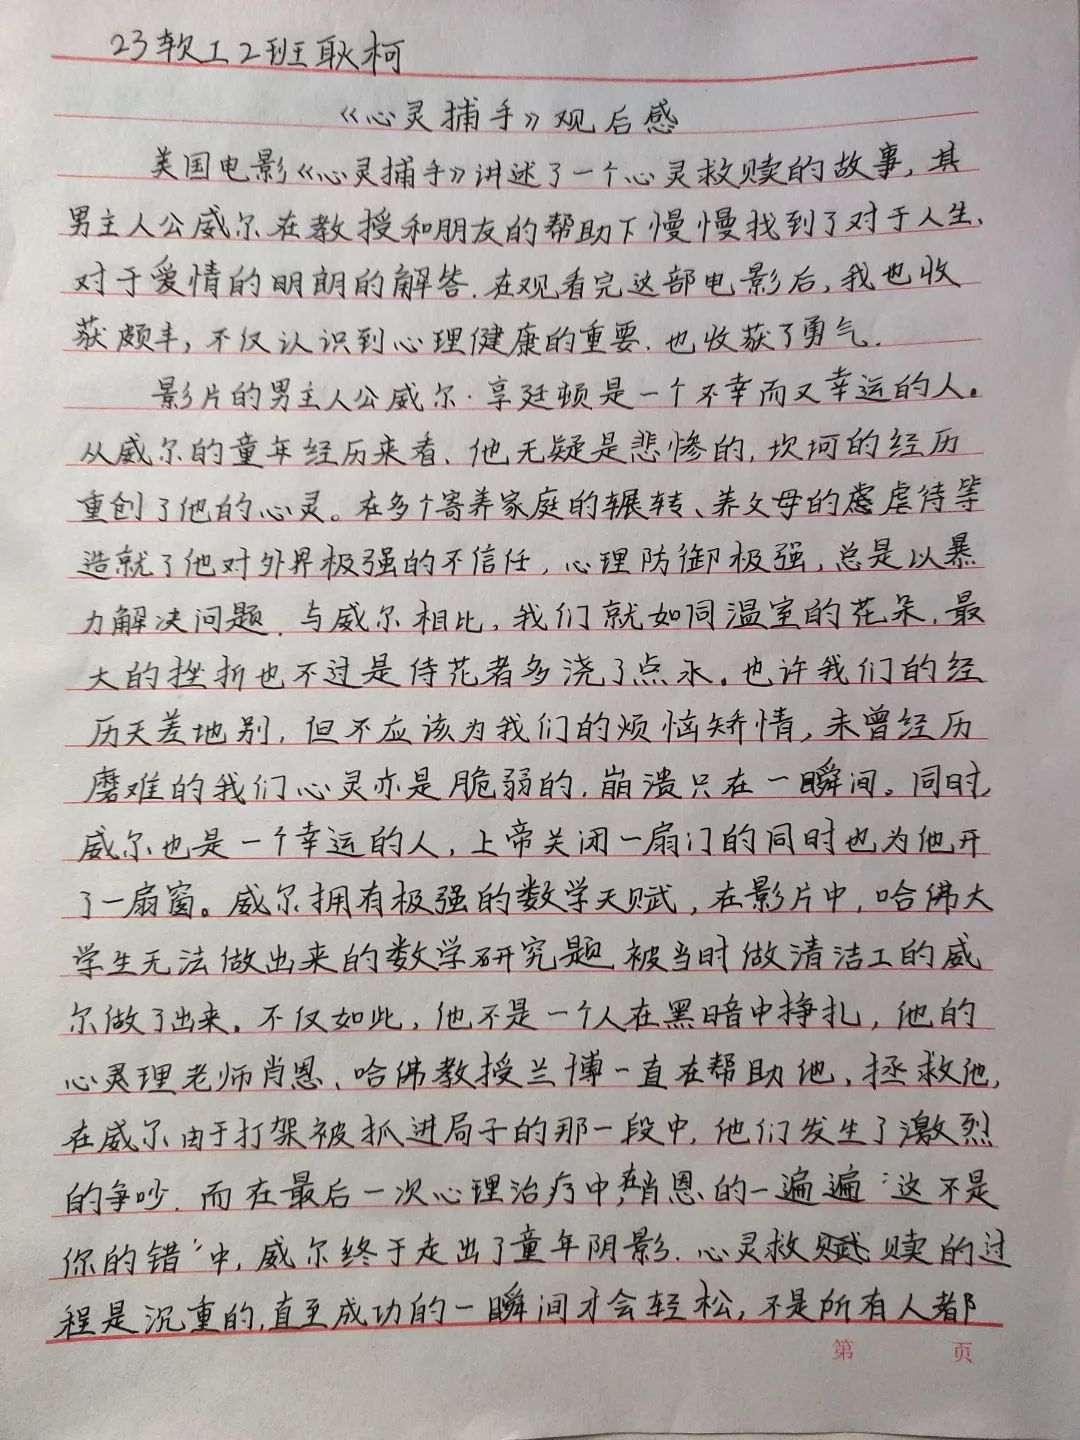 23软工2班耿柯
《心灵捕手》观后感
美国电影《心灵捕手》讲述了一个心灵救赎的故事,其
男主人公威尔在教授和朋友的帮助下慢慢找到了对于人生、
对于爱情的明朗的解答.在观看完这部电影后,我也收
获颇丰,不仅认识到心理健康的重要.也收获了勇气.
影片的男主人公威尔·享廷顿是一个不幸而又幸运的人。
从威尔的童年经历来看、他无疑是悲惨的,坎坷的经历
重创了他的心灵。在多个寄养家庭的辗转、养父母的虐待等
造就了他对外界极强的不信任,心理防御极强,总是以暴
力解决问题.与威尔相比,我们就如同温室的花朵,最
大的挫折也不过是侍花者多浇了点水。也许我们的经
历天差地别,但不应该为我们的烦恼矫情,未曾经历
磨难的我们心灵亦是脆弱的,崩溃只在一瞬间。同时,
威尔也是一个幸运的人,上帝关闭一扇门的同时也为他开
了一扇窗。威尔拥有极强的数学天赋,在影片中,哈佛大
学生无法做出来的数学研究题被当时做清洁工的威
尔做了出来。不仅如此,他不是一个人在黑暗中挣扎,他的
心灵理老师肖恩、哈佛教授兰博一直在帮助他,拯救他,
在威尔由于打架被抓进局子的那一段中,他们发生了激烈
的争吵.而在最后一次心理治疗中,在肖恩的一遍遍“这不是
你的错”中,威尔终于走出了童年阴影.心灵救赋赎的过
程是沉重的,直至成功的一瞬间才会轻松,不是所有人都
第 页